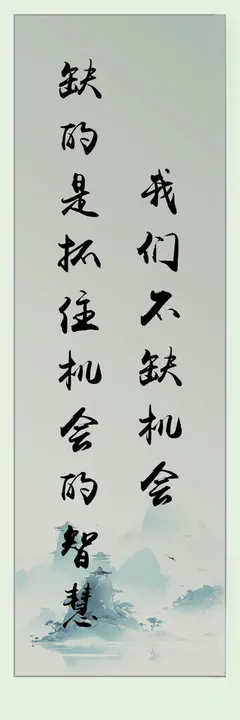 我们不缺机会
缺的是抓住机会的智慧